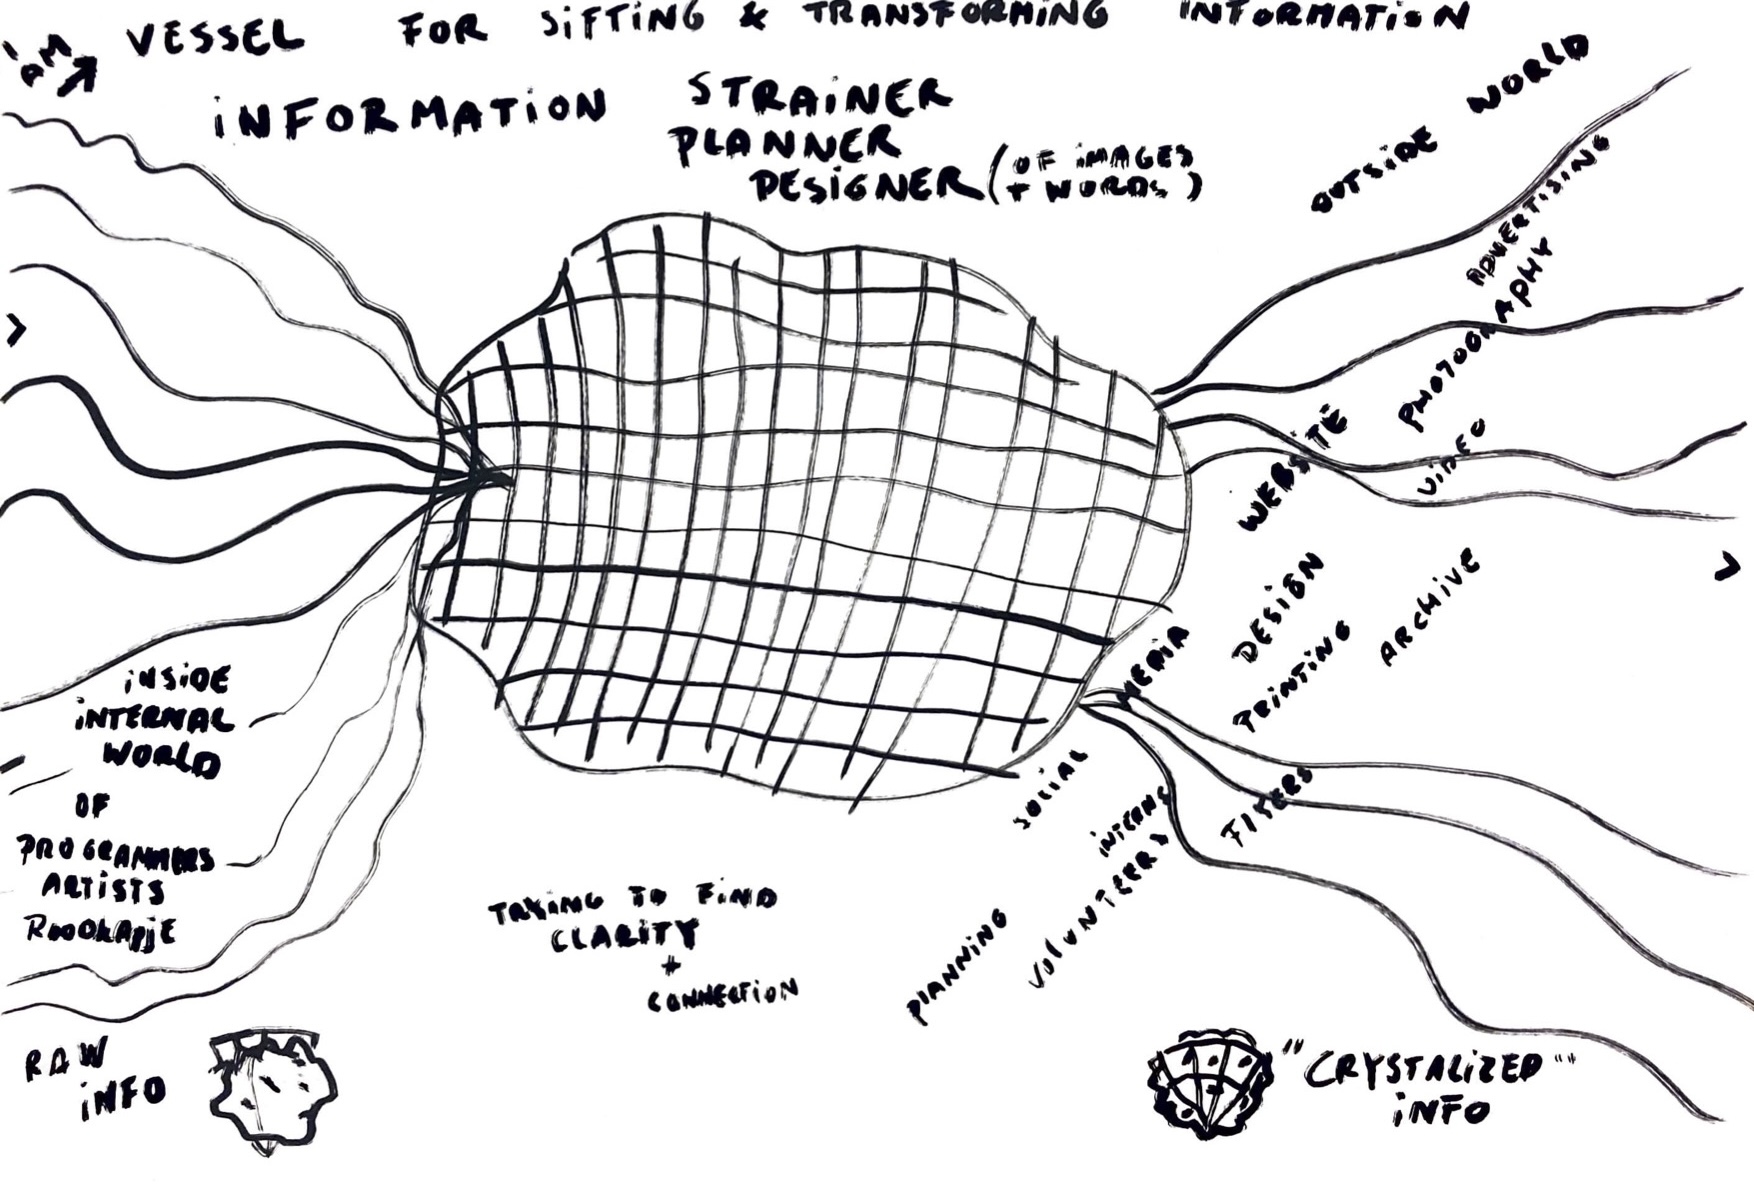 iAM VESSEL FOR SiFTiNG & TRANSFORMiNG iNFORMATiON
iNFORMATiON STRAiNER
PLANNER
DESiGNER (OF iMAGES
+ WORDS)
OUTSiDE WORLD
ADVERTiSiNG
PHOTOGRAPHY
ViDEO
WEBSiTE
ARCHiVE
DESiGN
PRiNTiNG
SOCiAL MEDiA
iNTERNS
VOLUNTEERS
PLANNiNG
iNSiDE
iNTERNAL
WORLD
OF
PROGRAMMERS
ARTiSTS
TRYiNG TO FiND
CLARiTY
+
CONNECTiON
RAW
iNFO
"CRYSTALiZED"
iNFO